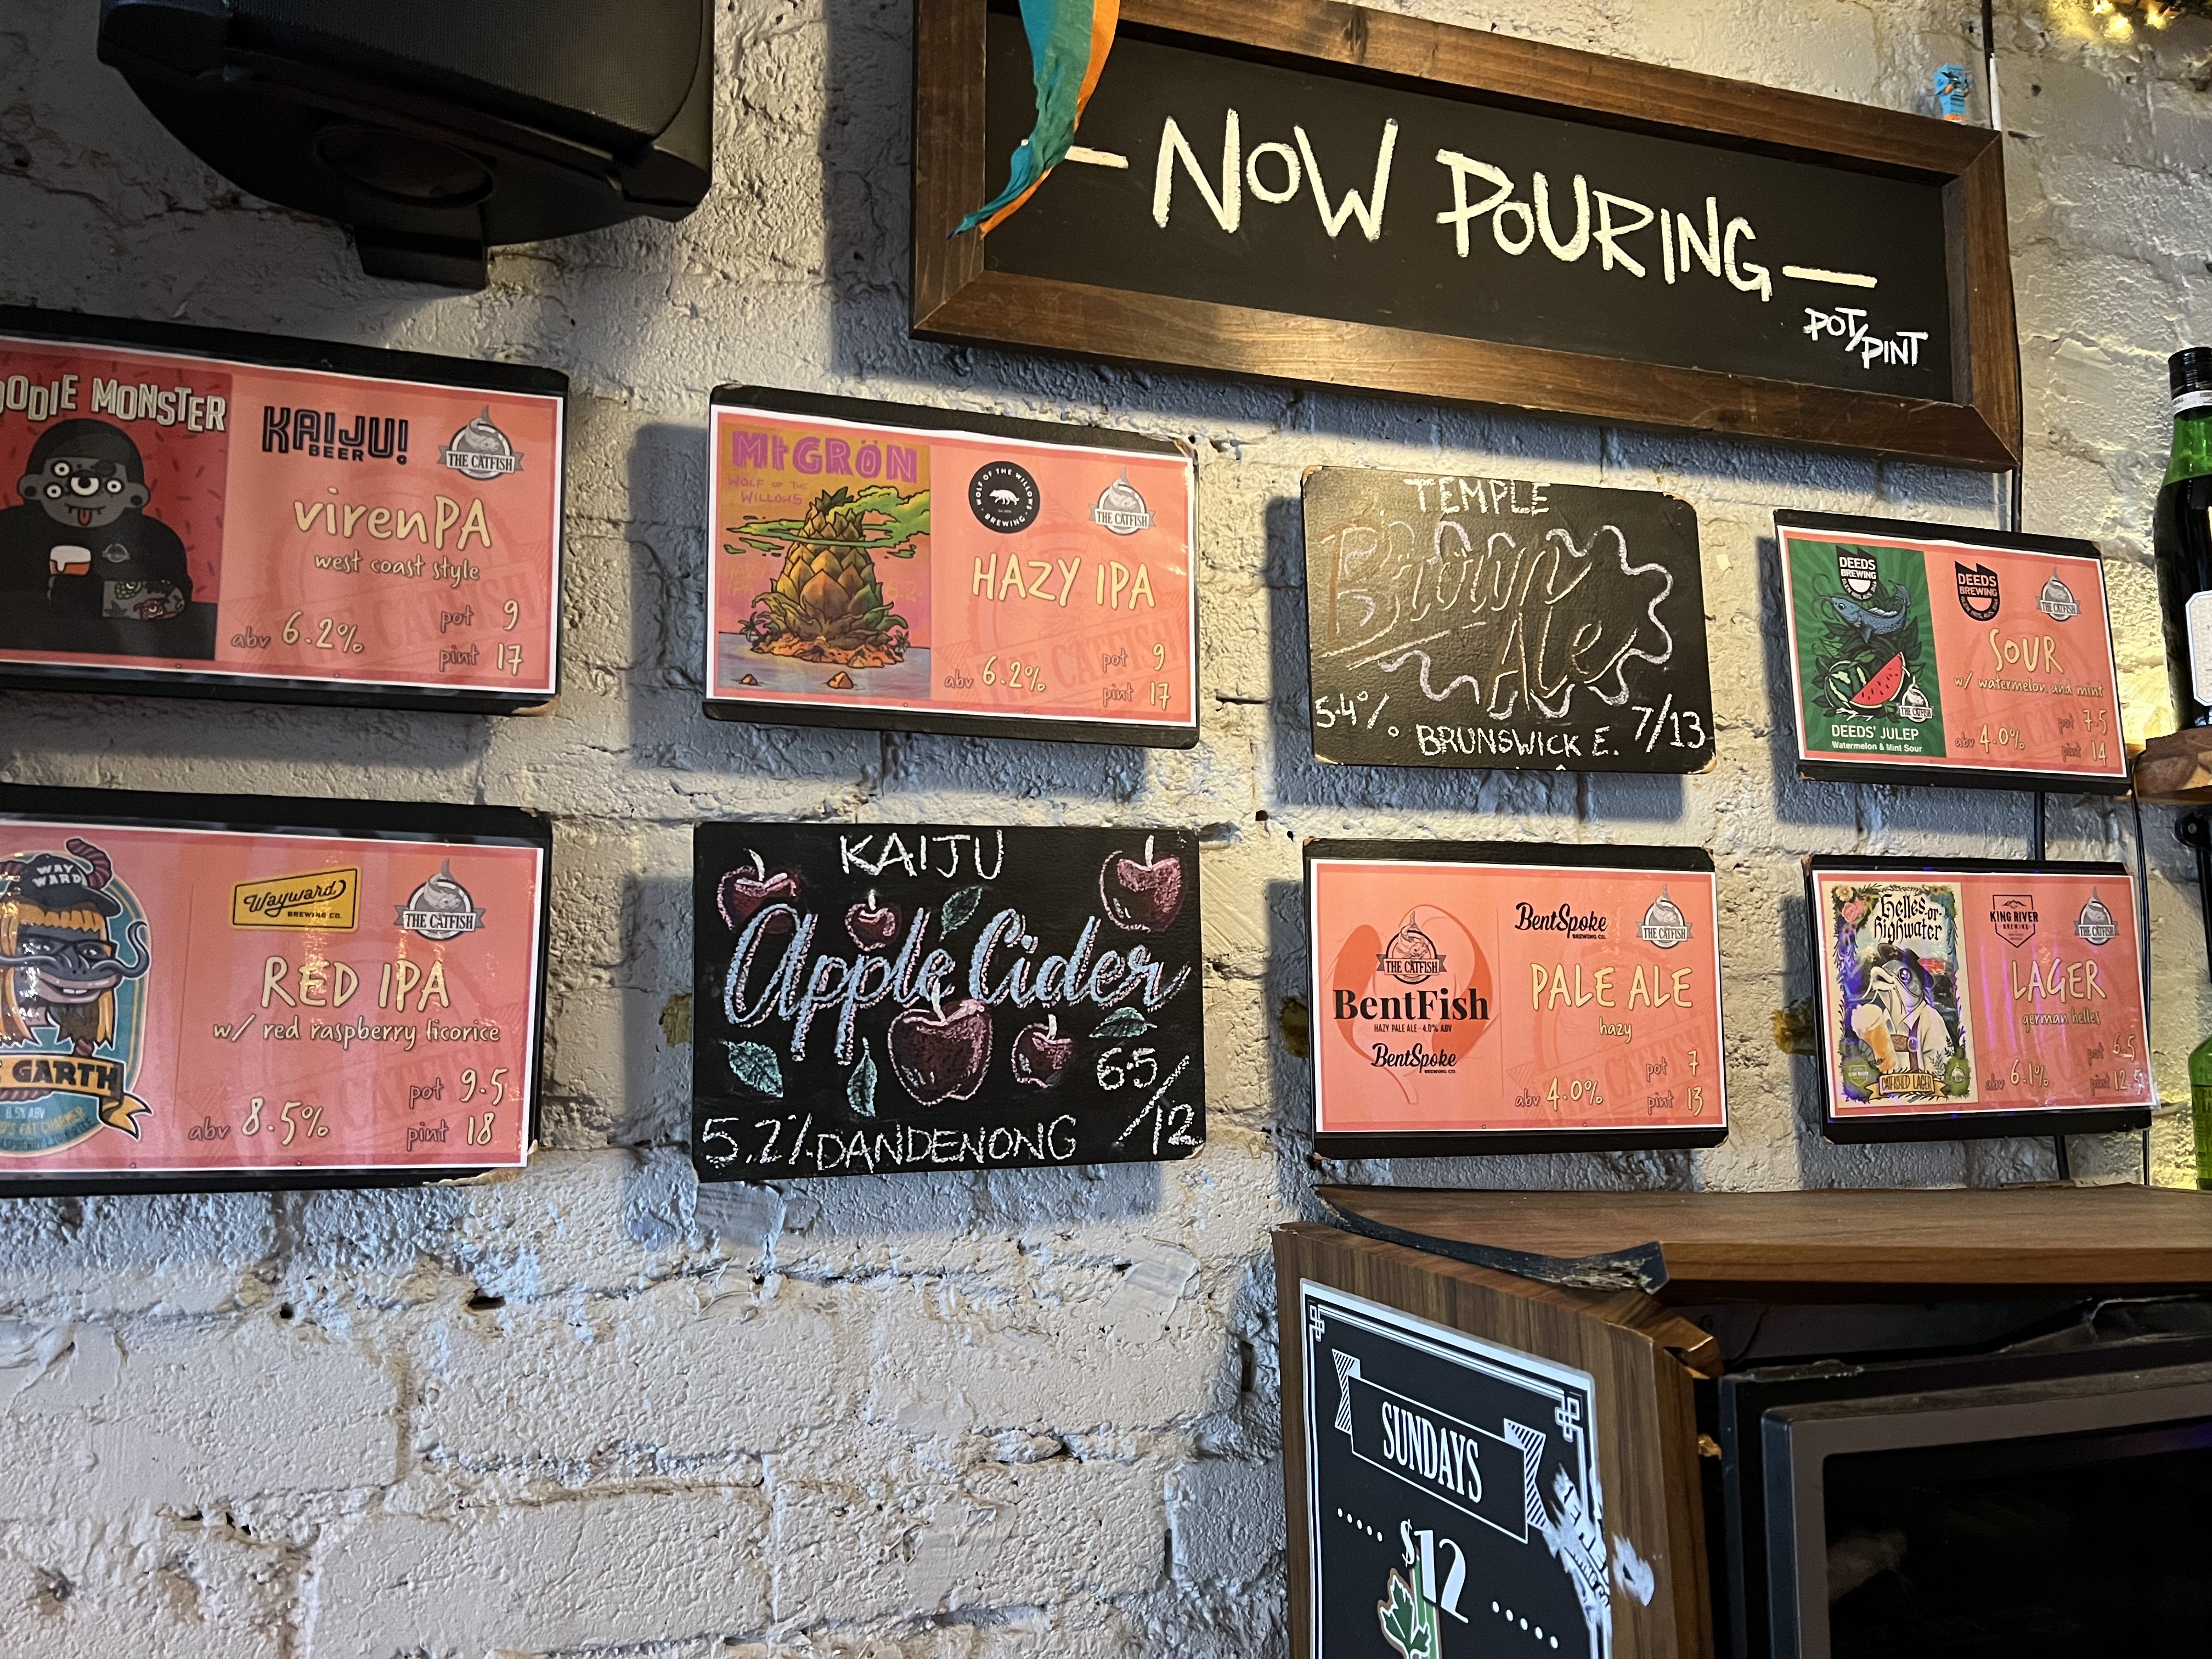 — NOW POURING —
POT/PINT
OODIE MONSTER
KAIJU!
BEER
THE CATFISH
virenPA
west coast style
abv 6.2%
pot 9
pint 17
MtGRÖN
WOLF OF THE
WILLOWS
WOLF OF THE WILLOWS
BREWING
THE CATFISH
HAZY IPA
abv 6.2%
pot 9
pint 17
TEMPLE
Brown
Ale
5.4%
BRUNSWICK E.
7/13
DEEDS
BREWING
DEEDS' JULEP
Watermelon & Mint Sour
DEEDS
BREWING
THE CATFISH
SOUR
w/ watermelon and mint
abv 4.0%
pot 7.5
pint 14
WAY
WARD
GARTH
8.5% ABV
Wayward
BREWING CO.
THE CATFISH
RED IPA
w/ red raspberry licorice
abv 8.5%
pot 9.5
pint 18
KAIJU
Apple Cider
6.5/12
5.2% DANDENONG
THE CATFISH
BentFish
HAZY PALE ALE · 4.0% ABV
BentSpoke
BREWING CO.
BentSpoke
BREWING CO.
THE CATFISH
PALE ALE
hazy
abv 4.0%
pot 7
pint 13
Helles-or-
highwater
CATFISHED LAGER
KING RIVER
BREWING
THE CATFISH
LAGER
german helles
abv 6.1%
pot 6.5
pint 12.5
SUNDAYS
$12